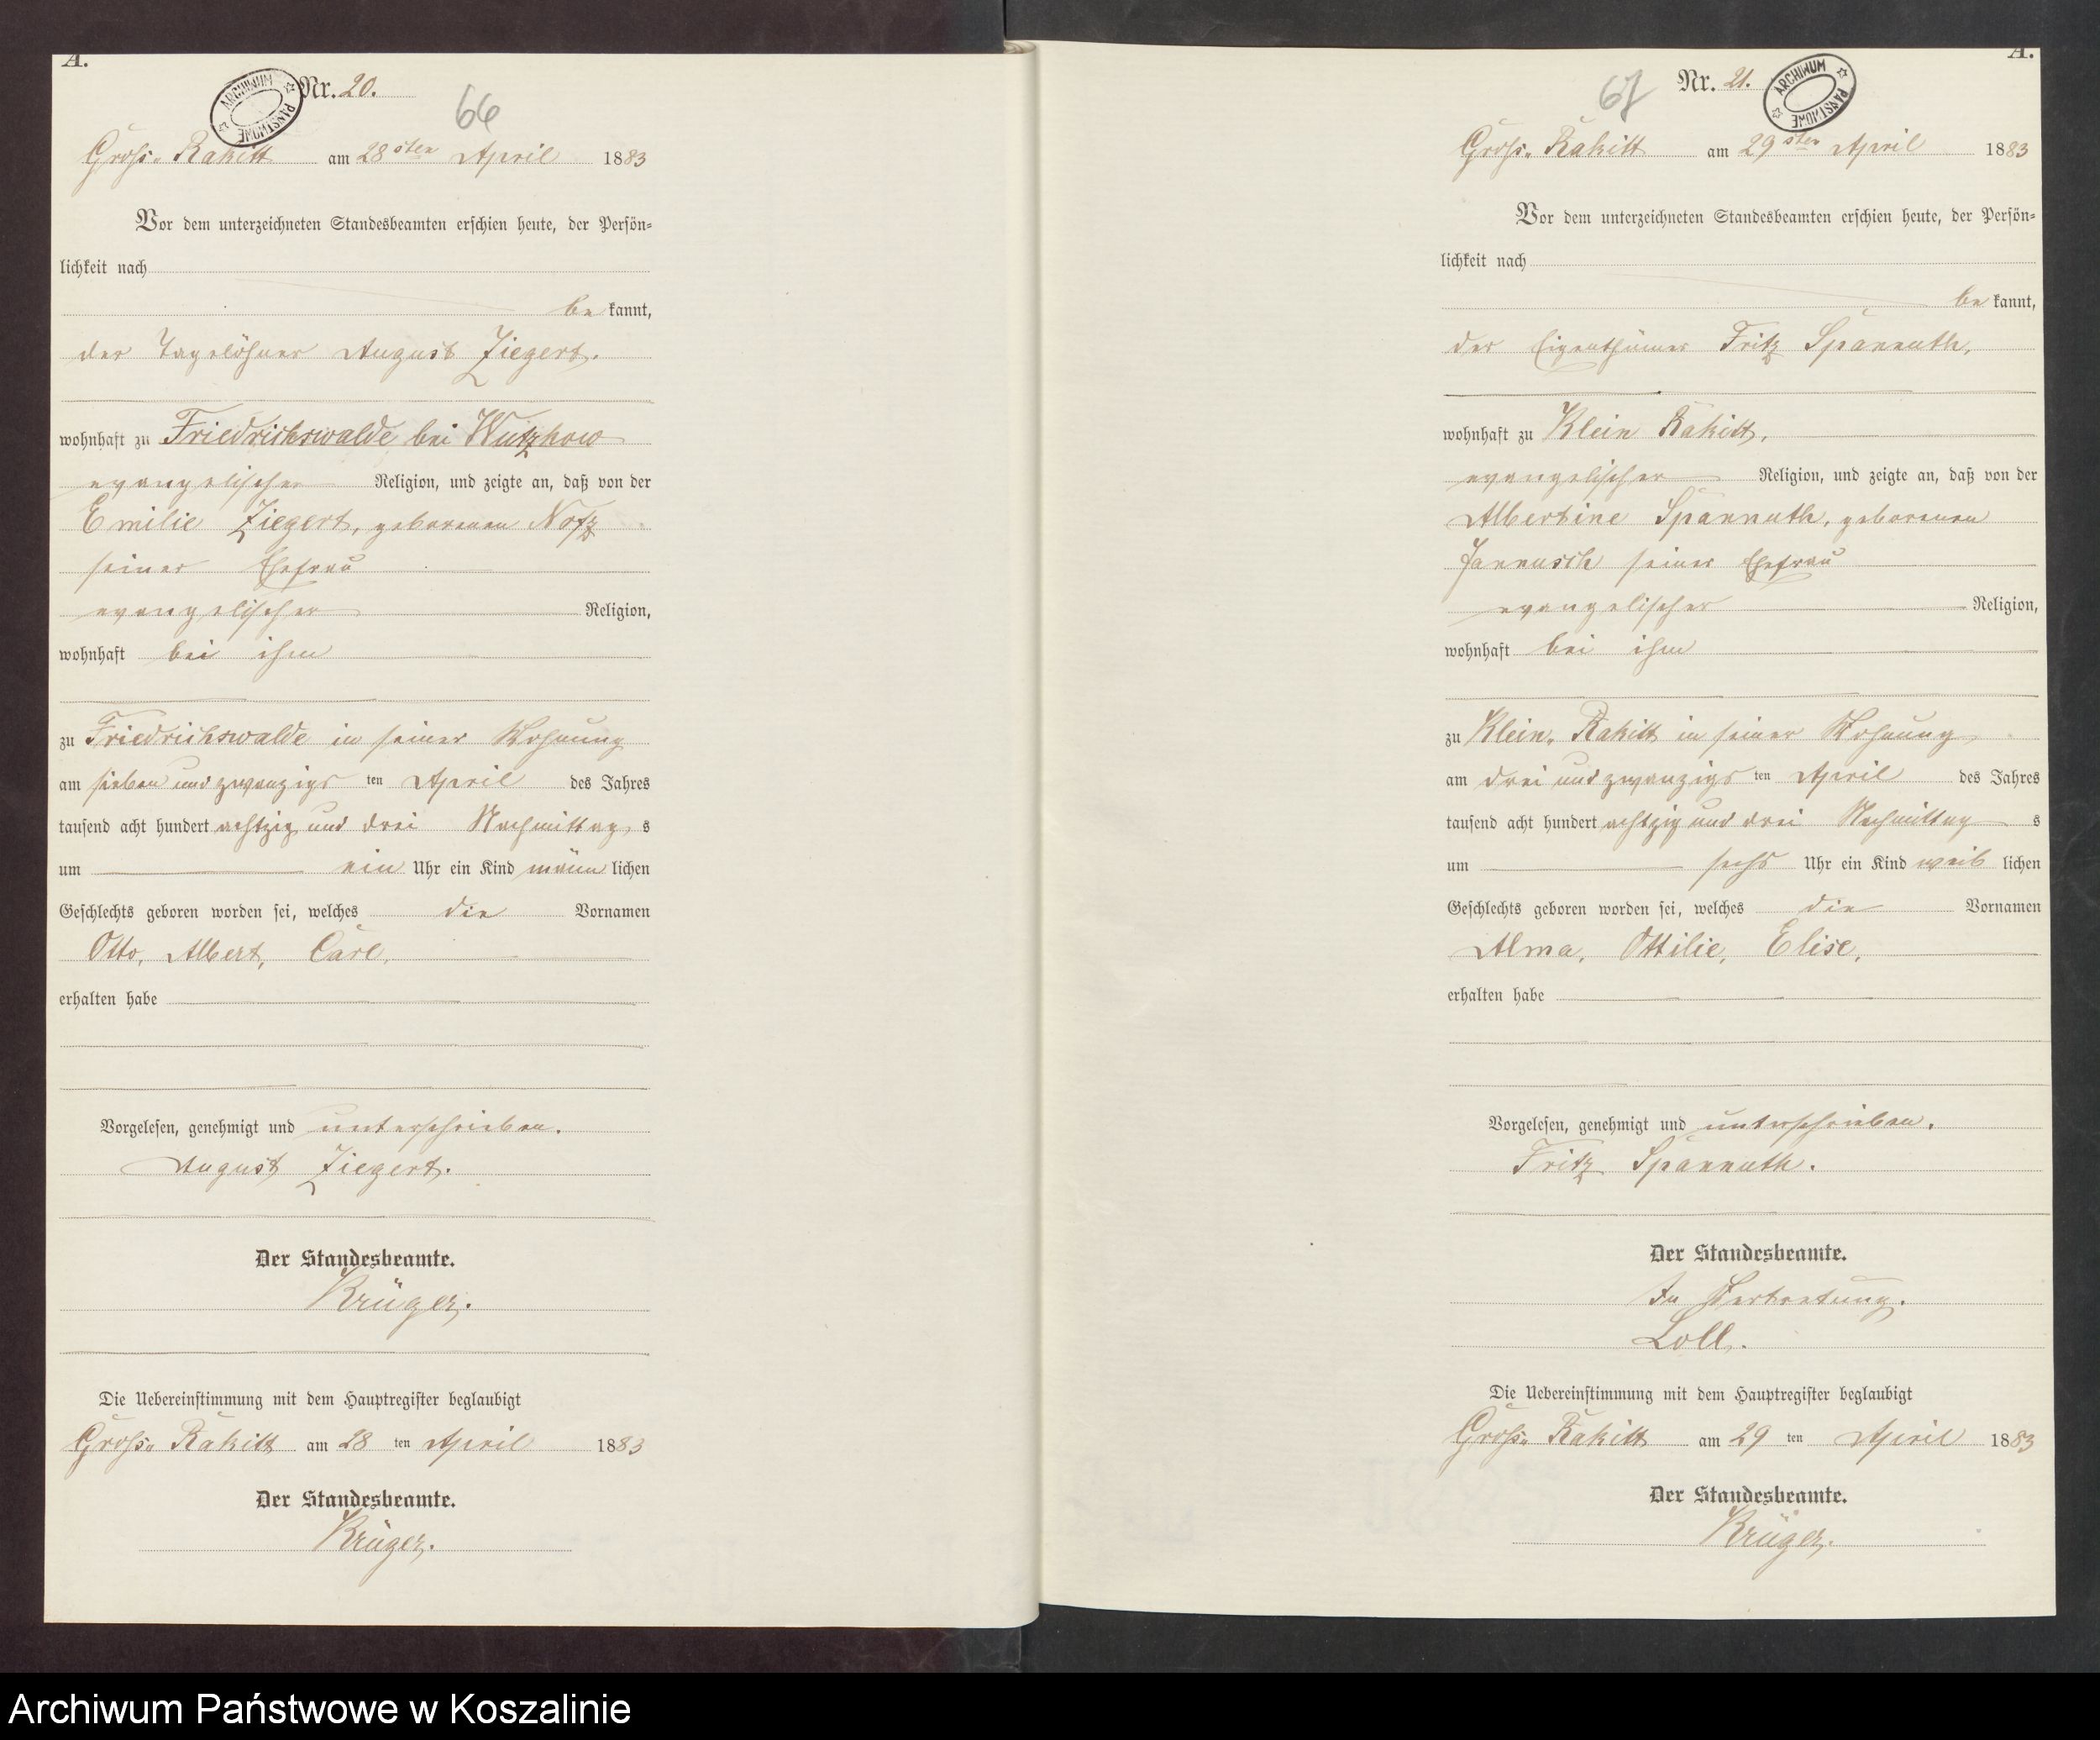 A.
Nr. 20.
66
ARCHIWUM PAŃSTWOWE
Groß- Rakitt am 28sten April 1883
Vor dem unterzeichneten Standesbeamten erschien heute, der Persön-
lichkeit nach
be kannt,
der Tagelöhner August Ziegert.
wohnhaft zu Friedrichswalde bei Wutzkow
evangelischer Religion, und zeigte an, daß von der
Emilie Ziegert, geborenen Notz
seiner Ehefrau
evangelischer Religion,
wohnhaft bei ihm
zu Friedrichswalde in seiner Wohnung
am sieben und zwanzigs ten April des Jahres
tausend acht hundert achtzig und drei Nachmittag s
um ein Uhr ein Kind männ lichen
Geschlechts geboren worden sei, welches die Vornamen
Otto, Albert, Carl.
erhalten habe
Vorgelesen, genehmigt und unterschrieben.
August Ziegert.
Der Standesbeamte.
Krüger.
Die Uebereinstimmung mit dem Hauptregister beglaubigt
Groß- Rakitt am 28 ten April 1883
Der Standesbeamte.
Krüger.
A.
67
Nr. 21.
ARCHIWUM PAŃSTWOWE
Groß- Rakitt am 29sten April 1883
Vor dem unterzeichneten Standesbeamten erschien heute, der Persön-
lichkeit nach
be kannt,
der Eigenthümer Fritz Spannuth,
wohnhaft zu Klein Rakitt,
evangelischer Religion, und zeigte an, daß von der
Albertine Spannuth, geborenen
Jannusch seiner Ehefrau
evangelischer Religion,
wohnhaft bei ihm
zu Klein- Rakitt in seiner Wohnung
am drei und zwanzigs ten April des Jahres
tausend acht hundert achtzig und drei Nachmittag s
um sechs Uhr ein Kind weib lichen
Geschlechts geboren worden sei, welches die Vornamen
Alma, Ottilie, Elise,
erhalten habe
Vorgelesen, genehmigt und unterschrieben.
Fritz Spannuth.
Der Standesbeamte.
In Vertretung.
Loll.
Die Uebereinstimmung mit dem Hauptregister beglaubigt
Groß- Rakitt am 29 ten April 1883
Der Standesbeamte.
Krüger.
Archiwum Państwowe w Koszalinie